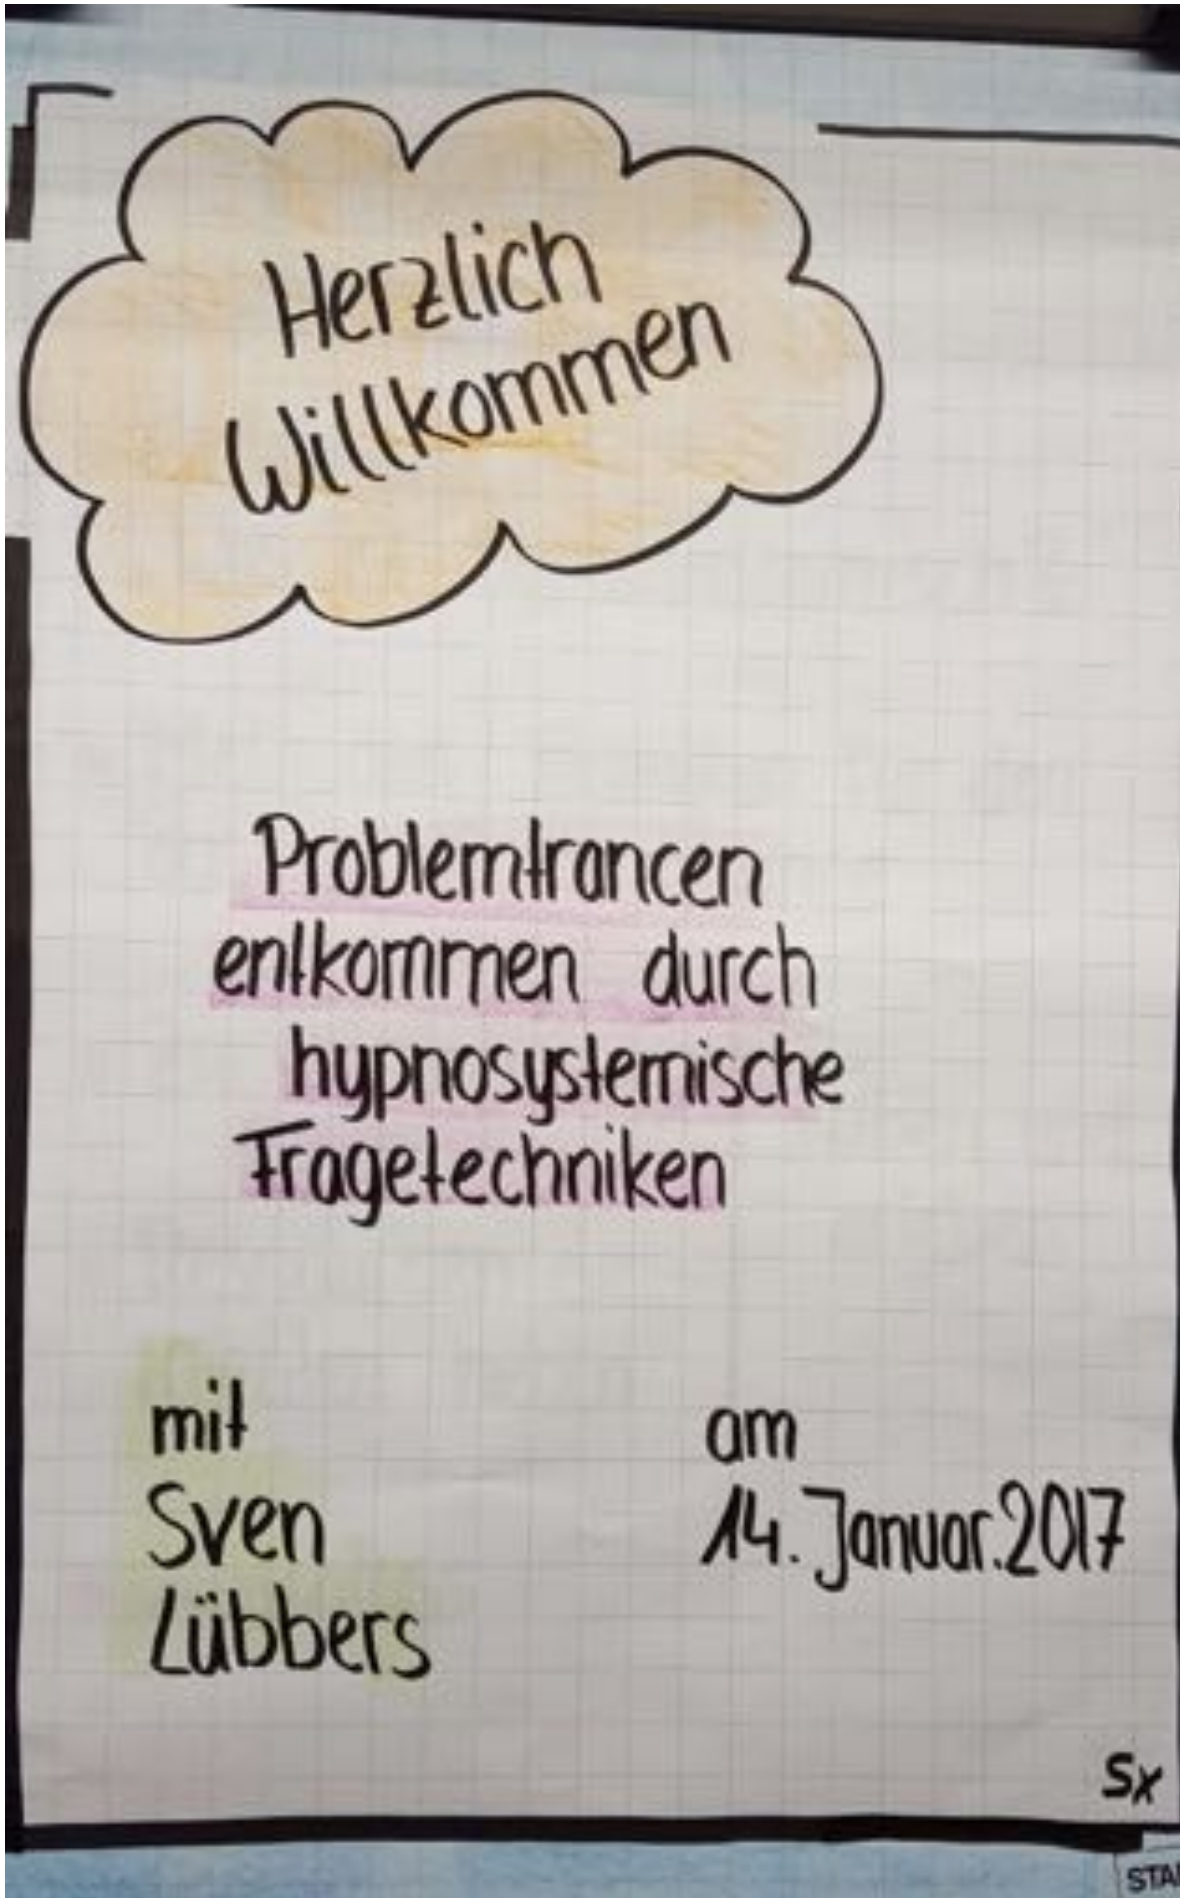 Herzlich
Willkommen
Problemtrancen
entkommen durch
hypnosystemische
Fragetechniken
mit
Sven
Lübbers
am
14. Januar.2017
Sx